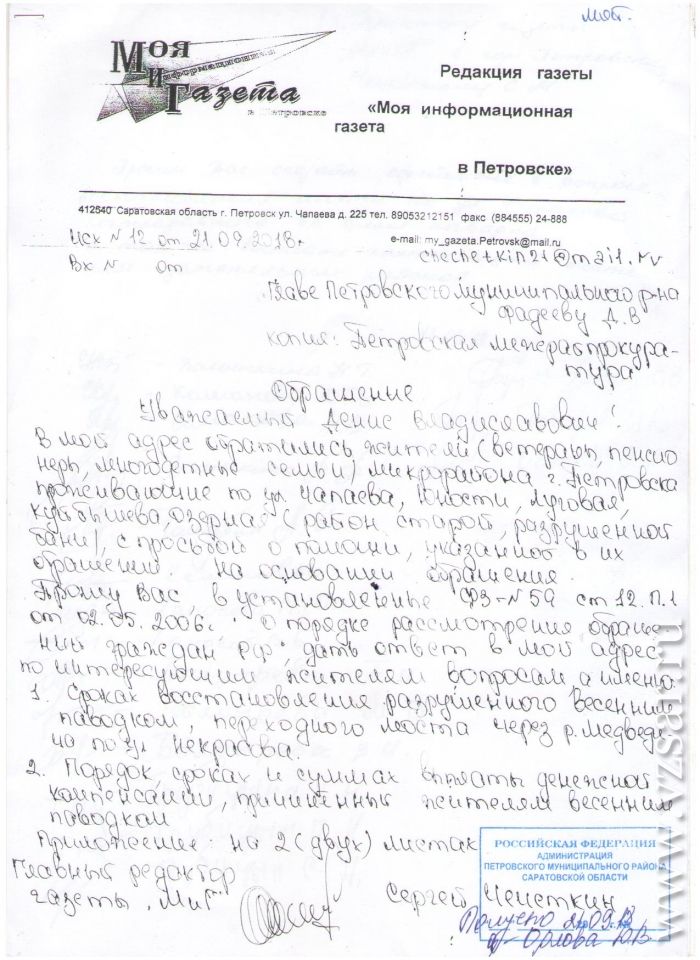 моб.
Моя
информационная
И
Газета
в Петровске
Редакция газеты
«Моя информационная
газета
в Петровске»
412540 Саратовская область г. Петровск ул. Чапаева д. 225 тел. 89053212151 факс (884555) 24-888
Исх № 12 от 21.09.2018 г
e-mail: my_gazeta.Petrovsk@mail.ru
chechetkin21@mail.ru
Вх № от
Главе Петровского муниципального р-на
Фадееву Д.В
копия: Петровская межрайпрокура-
тура
Обращение
Уважаемый Денис Владиславович!
В мой адрес обратились жители (ветераны, пенсио
неры, многодетные семьи) микрорайона г. Петровска
проживающие по ул Чапаева, Юности, Луговая,
Куйбышева, Озерная (район старой, разрушенной
бани), с просьбой о помощи, указанной в их
обращении. На основании обращения.
Прошу Вас, в установленные ФЗ-№59 ст 12. п.1
от 02.05.2006г. "О порядке рассмотрения обраще-
ний граждан РФ", дать ответ в мой адрес
по интересующим жителям вопросам а именно
1. Сроках восстановления разрушенного весенним
паводком, переходного моста через р. Медведи-
ца по ул Некрасова.
2. Порядок, сроках и суммах выплаты денежной
компенсации, причиненный жителям весенним
паводком
Приложение: на 2 (двух) листах
Главный редактор
газеты „МиГ" Сергей Чечеткин
РОССИЙСКАЯ ФЕДЕРАЦИЯ
АДМИНИСТРАЦИЯ
ПЕТРОВСКОГО МУНИЦИПАЛЬНОГО РАЙОНА
САРАТОВСКОЙ ОБЛАСТИ
Получено 21.09.18
Орлова Ю.В.
www.vzsar.ru